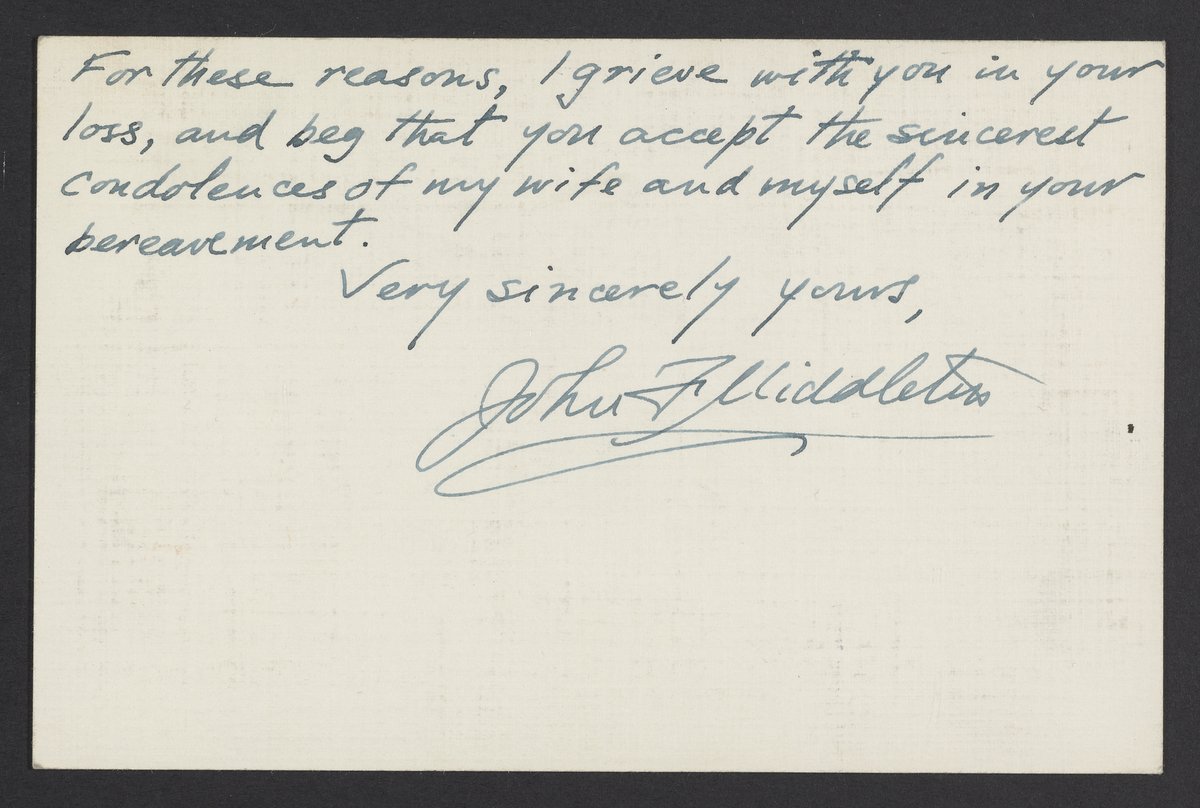 For these reasons, I grieve with you in your
loss, and beg that you accept the sincerest
condolences of my wife and myself in your
bereavement.
Very sincerely yours,
John F Middleton